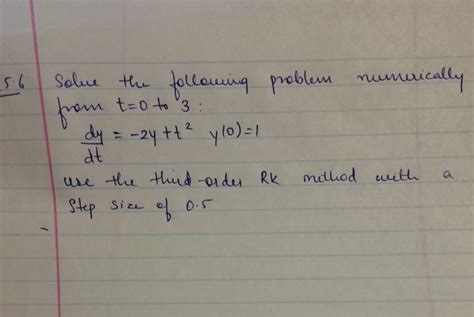 5.6 Solve the following problem numerically
from t=0 to 3 :
dy/dt = -2y + t² y(0)=1
use the third-order RK method with a
step size of 0.5